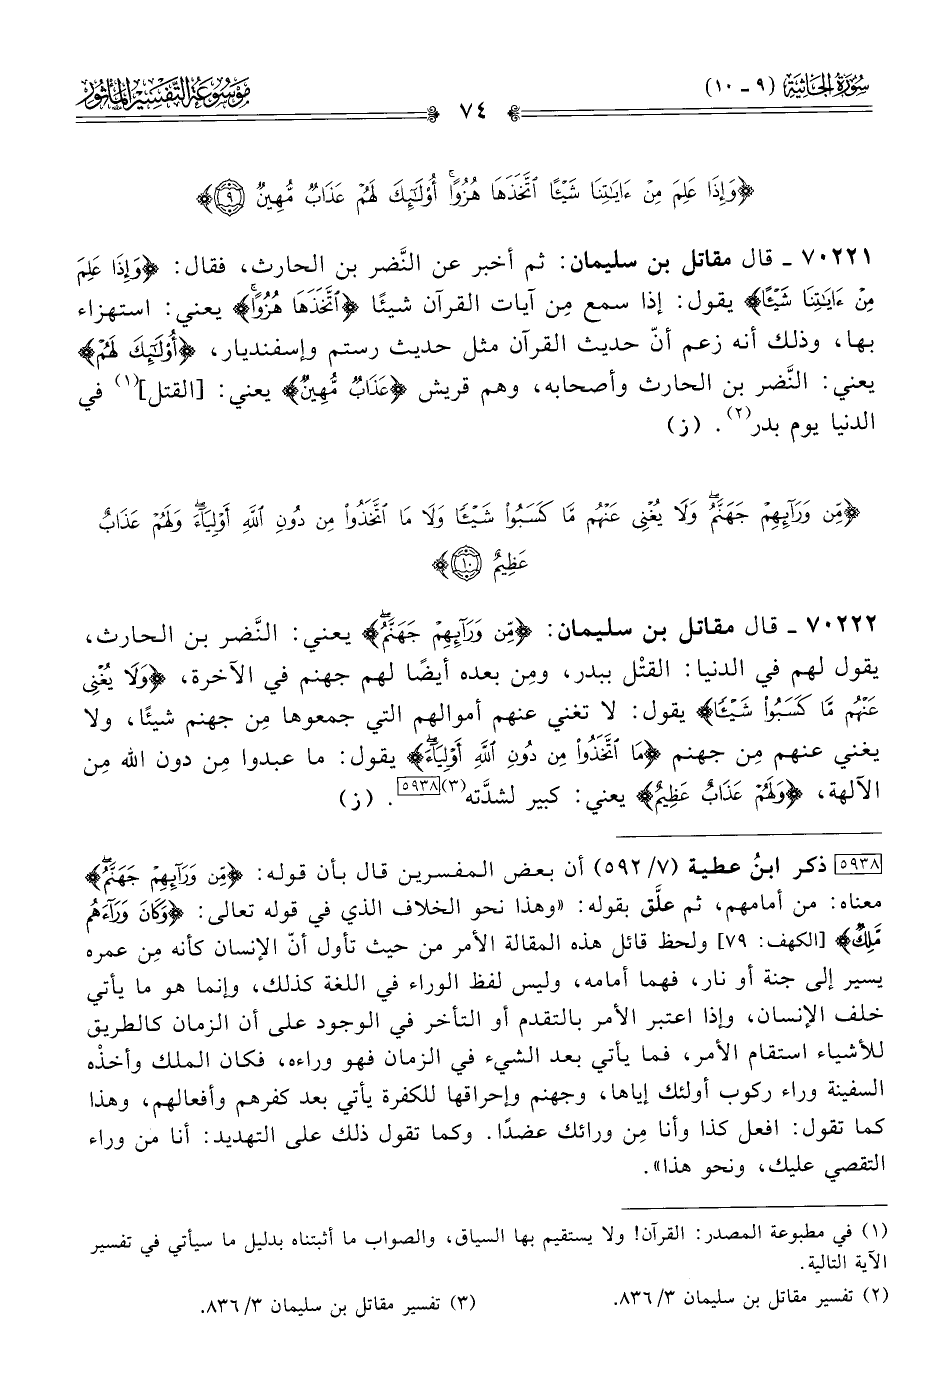 سُورَةُ الجَاثِيَةِ (٩ - ١٠)
٧٤
مَوْسُوعَةُ التَّفْسِيرِ المَأْثُورِ
﴿وَإِذَا عَلِمَ مِنْ ءَايَٰتِنَا شَيْـًٔا ٱتَّخَذَهَا هُزُوًا ۚ أُو۟لَٰٓئِكَ لَهُمْ عَذَابٌ مُّهِينٌ ٩﴾
٧٠٢٢١ ـ قال مقاتل بن سليمان: ثم أخبر عن النَّضر بن الحارث، فقال: ﴿وَإِذَا عَلِمَ
مِنْ ءَايَٰتِنَا شَيْـًٔا﴾ يقول: إذا سمع مِن آيات القرآن شيئًا ﴿ٱتَّخَذَهَا هُزُوًا ۚ﴾ يعني: استهزاء
بها، وذلك أنه زعم أنّ حديث القرآن مثل حديث رستم وإسفنديار، ﴿أُو۟لَٰٓئِكَ لَهُمْ﴾
يعني: النَّضر بن الحارث وأصحابه، وهم قريش ﴿عَذَابٌ مُّهِينٌ﴾ يعني: [القتل](١) في
الدنيا يوم بدر(٢). (ز)
﴿مِّن وَرَآئِهِمْ جَهَنَّمُ ۖ وَلَا يُغْنِى عَنْهُم مَّا كَسَبُوا۟ شَيْـًٔا وَلَا مَا ٱتَّخَذُوا۟ مِن دُونِ ٱللَّهِ أَوْلِيَآءَ ۖ وَلَهُمْ عَذَابٌ
عَظِيمٌ ١٠﴾
٧٠٢٢٢ ـ قال مقاتل بن سليمان: ﴿مِّن وَرَآئِهِمْ جَهَنَّمُ ۖ﴾ يعني: النَّضر بن الحارث،
يقول لهم في الدنيا: القتْل ببدر، ومِن بعده أيضًا لهم جهنم في الآخرة، ﴿وَلَا يُغْنِى
عَنْهُم مَّا كَسَبُوا۟ شَيْـًٔا﴾ يقول: لا تغني عنهم أموالهم التي جمعوها مِن جهنم شيئًا، ولا
يغني عنهم مِن جهنم ﴿مَا ٱتَّخَذُوا۟ مِن دُونِ ٱللَّهِ أَوْلِيَآءَ ۖ﴾ يقول: ما عبدوا مِن دون الله مِن
الآلهة، ﴿وَلَهُمْ عَذَابٌ عَظِيمٌ﴾ يعني: كبير لشدَّته(٣)[٥٩٣٨]. (ز)
[٥٩٣٨] ذكر ابنُ عطية (٧/ ٥٩٢) أن بعض المفسرين قال بأن قوله: ﴿مِّن وَرَآئِهِمْ جَهَنَّمُ ۖ﴾
معناه: من أمامهم، ثم علَّق بقوله: «وهذا نحو الخلاف الذي في قوله تعالى: ﴿وَكَانَ وَرَآءَهُم
مَّلِكٌ﴾ [الكهف: ٧٩] ولحظ قائل هذه المقالة الأمر من حيث تأول أنّ الإنسان كأنه مِن عمره
يسير إلى جنة أو نار، فهما أمامه، وليس لفظ الوراء في اللغة كذلك، وإنما هو ما يأتي
خلف الإنسان، وإذا اعتبر الأمر بالتقدم أو التأخر في الوجود على أن الزمان كالطريق
للأشياء استقام الأمر، فما يأتي بعد الشيء في الزمان فهو وراءه، فكان الملك وأخذْه
السفينة وراء ركوب أولئك إياها، وجهنم وإحراقها للكفرة يأتي بعد كفرهم وأفعالهم، وهذا
كما تقول: افعل كذا وأنا مِن ورائك عضدًا. وكما تقول ذلك على التهديد: أنا من وراء
التقصي عليك، ونحو هذا».
(١) في مطبوعة المصدر: القرآن! ولا يستقيم بها السياق، والصواب ما أثبتناه بدليل ما سيأتي في تفسير
الآية التالية.
(٢) تفسير مقاتل بن سليمان ٣/ ٨٣٦. (٣) تفسير مقاتل بن سليمان ٣/ ٨٣٦.